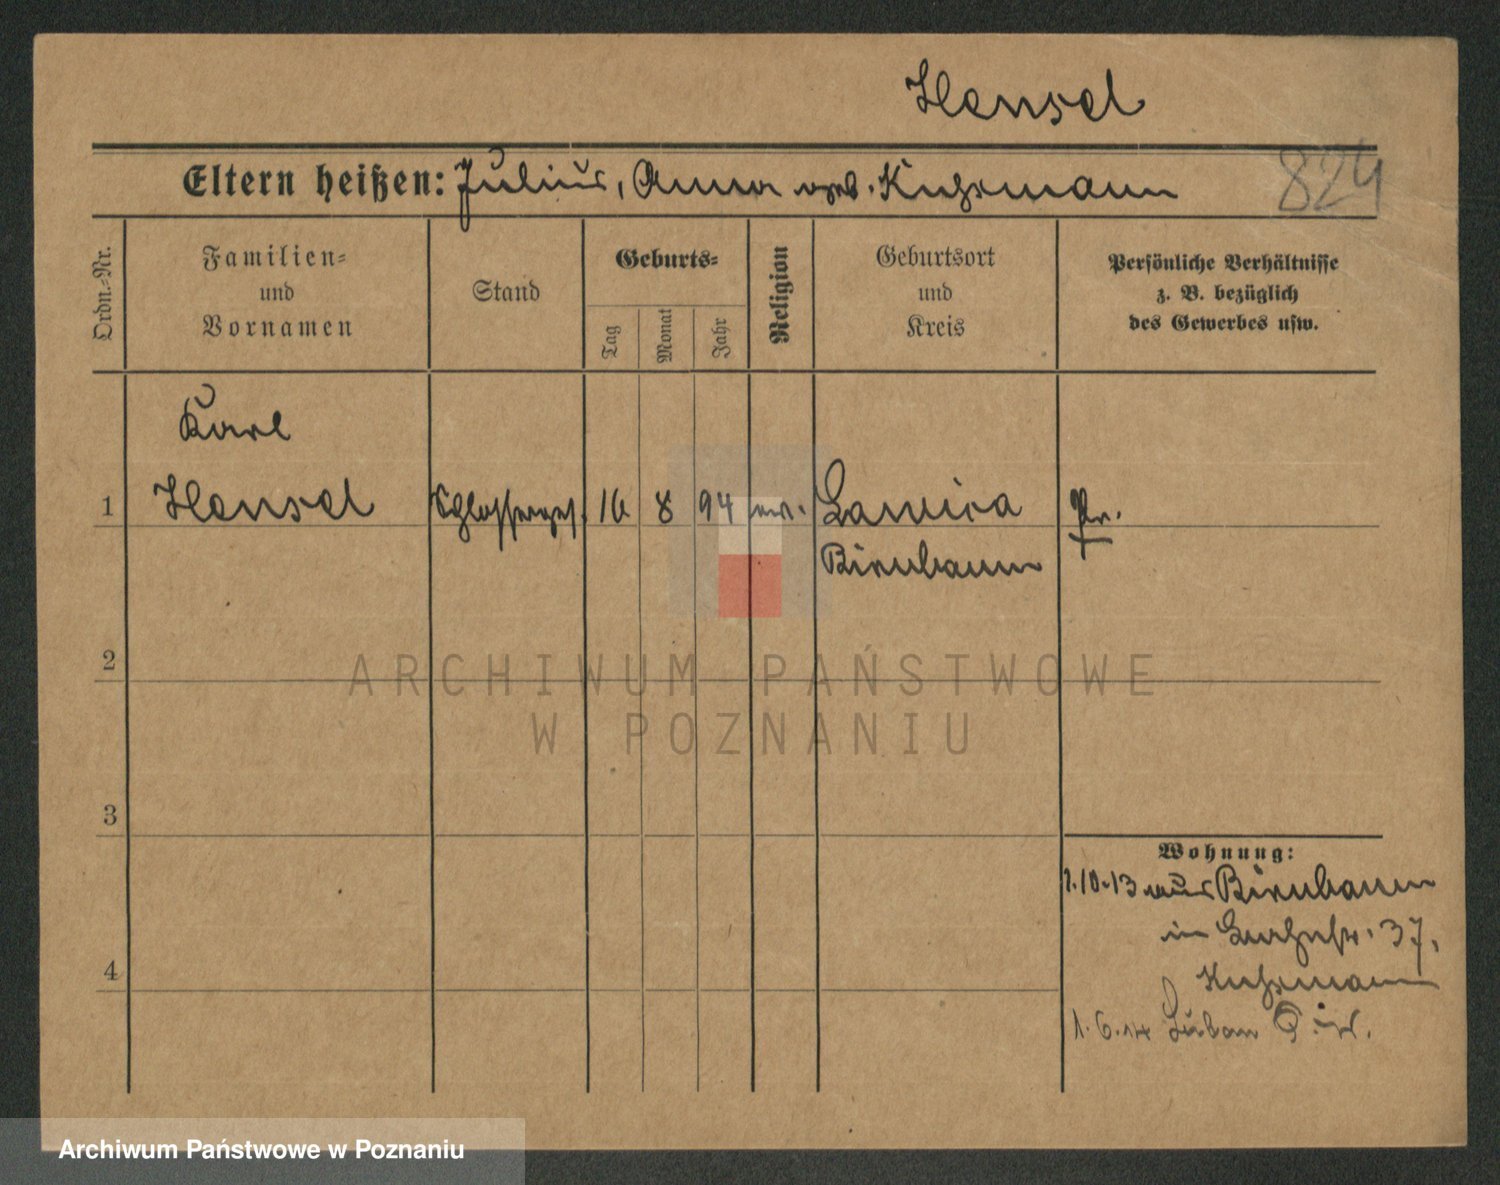 Hensel
824
Eltern heißen: Julius, Anna geb. Kuhrmann
Ordn.-Nr.
Familien-
und
Vornamen
Stand
Geburts-
Tag
Monat
Jahr
Religion
Geburtsort
und
Kreis
Persönliche Verhältnisse
z. B. bezüglich
des Gewerbes usw.
Karl
1 Hensel Schlosserges. 16 8 94 ev. Pr.
Birnbaum
2
ARCHIWUM PAŃSTWOWE
W POZNANIU
3
Wohnung:
1.10.13 aus Birnbaum
in 37,
4
Kuhrmann
1.6.14 Luban
Archiwum Państwowe w Poznaniu